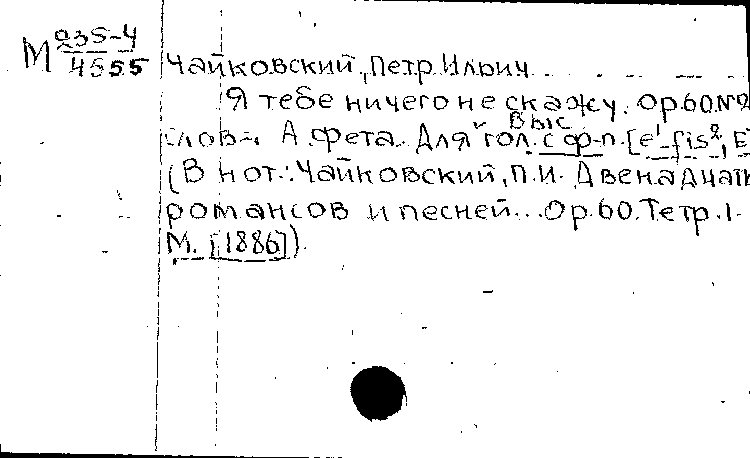 М 235-4
4555
Чайковский, Петр Ильич
Я тебе ничего не скажу. Ор.60.№2
Слова А. Фета. Для выс. гол. с ф-п. [e¹-fis², E
(В нот.: Чайковский, П.И. Двенадцать
романсов и песней... Ор.60. Тетр.1.
М. [1886]).